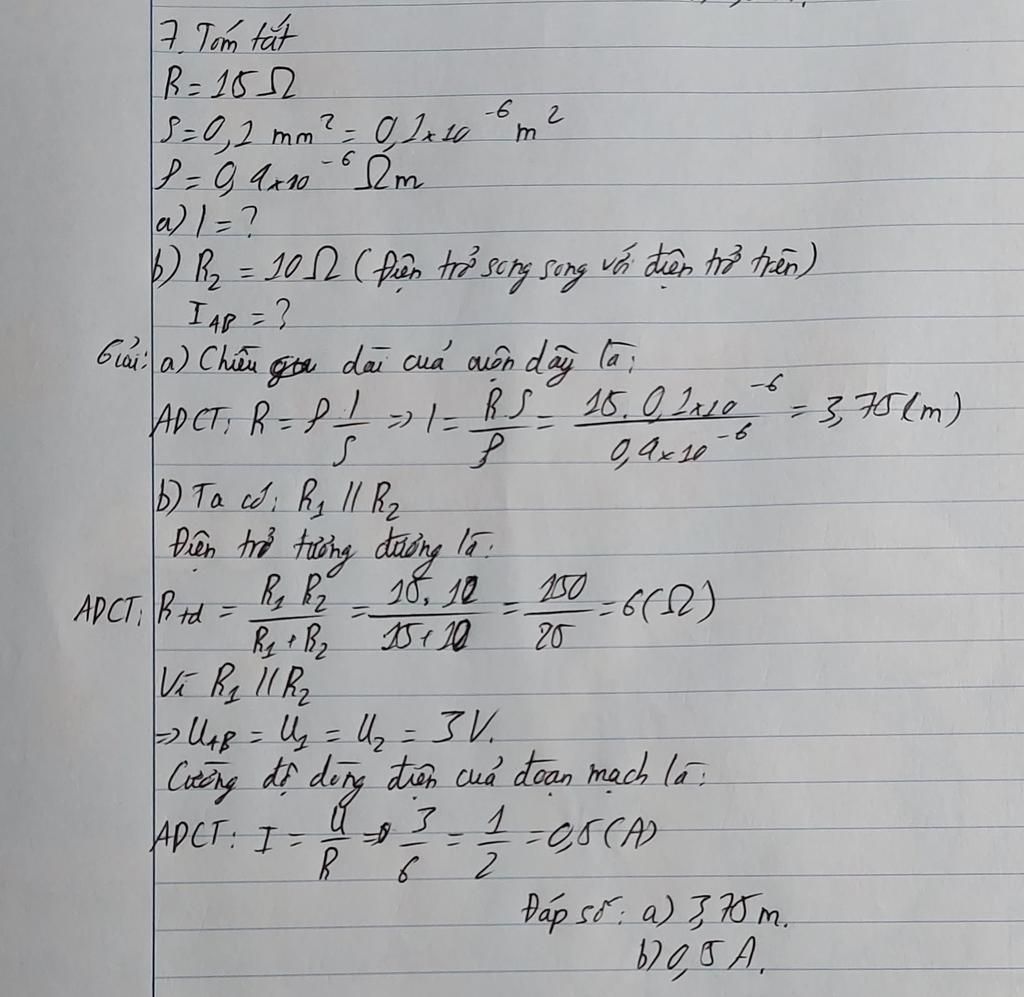 7. Tóm tắt
R = 15 Ω
S = 0,1 mm² = 0,1x10⁻⁶ m²
ρ = 0,4x10⁻⁶ Ωm
a) l = ?
b) R₂ = 10 Ω (Điện trở song song với điện trở trên)
I_AB = ?
Giải: a) Chiều dài của cuộn dây là:
ADCT: R = ρ l/S => l = RS/ρ = 15. 0,1x10⁻⁶ / 0,4x10⁻⁶ = 3,75 (m)
b) Ta có: R₁ // R₂
Điện trở tương đương là:
ADCT: R_tđ = R₁ R₂ / R₁ + R₂ = 15. 10 / 15 + 10 = 150/25 = 6 (Ω)
Vì R₁ // R₂
=> U_AB = U₁ = U₂ = 3V.
Cường độ dòng điện của đoạn mạch là:
ADCT: I = U/R = 3/6 = 1/2 = 0,5 (A)
Đáp số: a) 3,75 m.
b) 0,5 A.